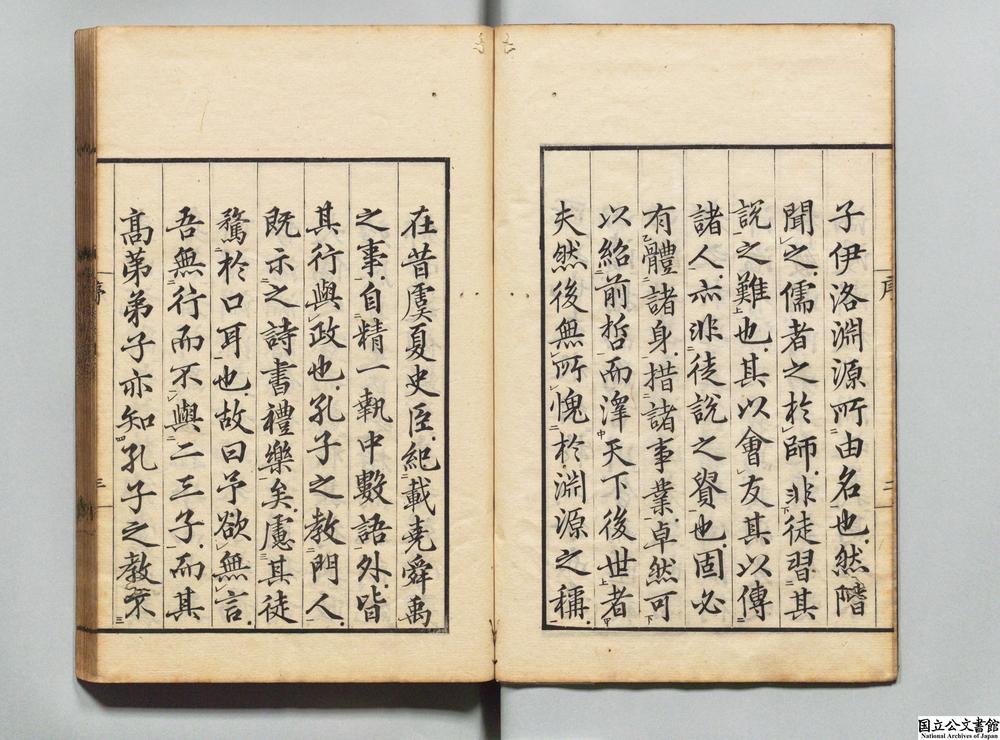 子伊洛淵源所由名也然階
聞之儒者之於師非徒習其
說之難也其以會友其以傳
諸人亦非徒說之貴也固必
有體諸身措諸事業卓然可
以紹前哲而澤天下後世者
夫然後無所愧於淵源之稱
序
二
在昔虞夏史臣紀載堯舜禹
之事自精一執中數語外皆
其行與政也孔子之教門人
既示之詩書禮樂矣慮其徒
騖於口耳也故曰予欲無言
吾無行而不與二三子而其
高第弟子亦知孔子之教不
序
三
国立公文書館
National Archives of Japan